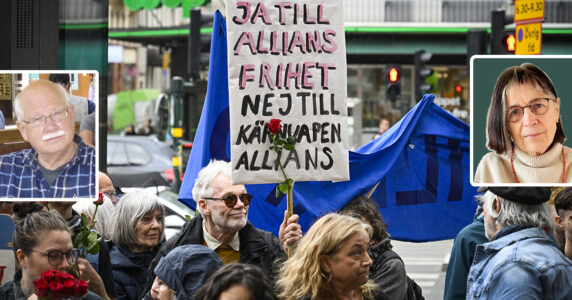 JA TILL
ALLIANS
FRIHET
NEJ TILL
KÄRNVAPEN
ALLIANS
6.30-9.30
Övrig
tid